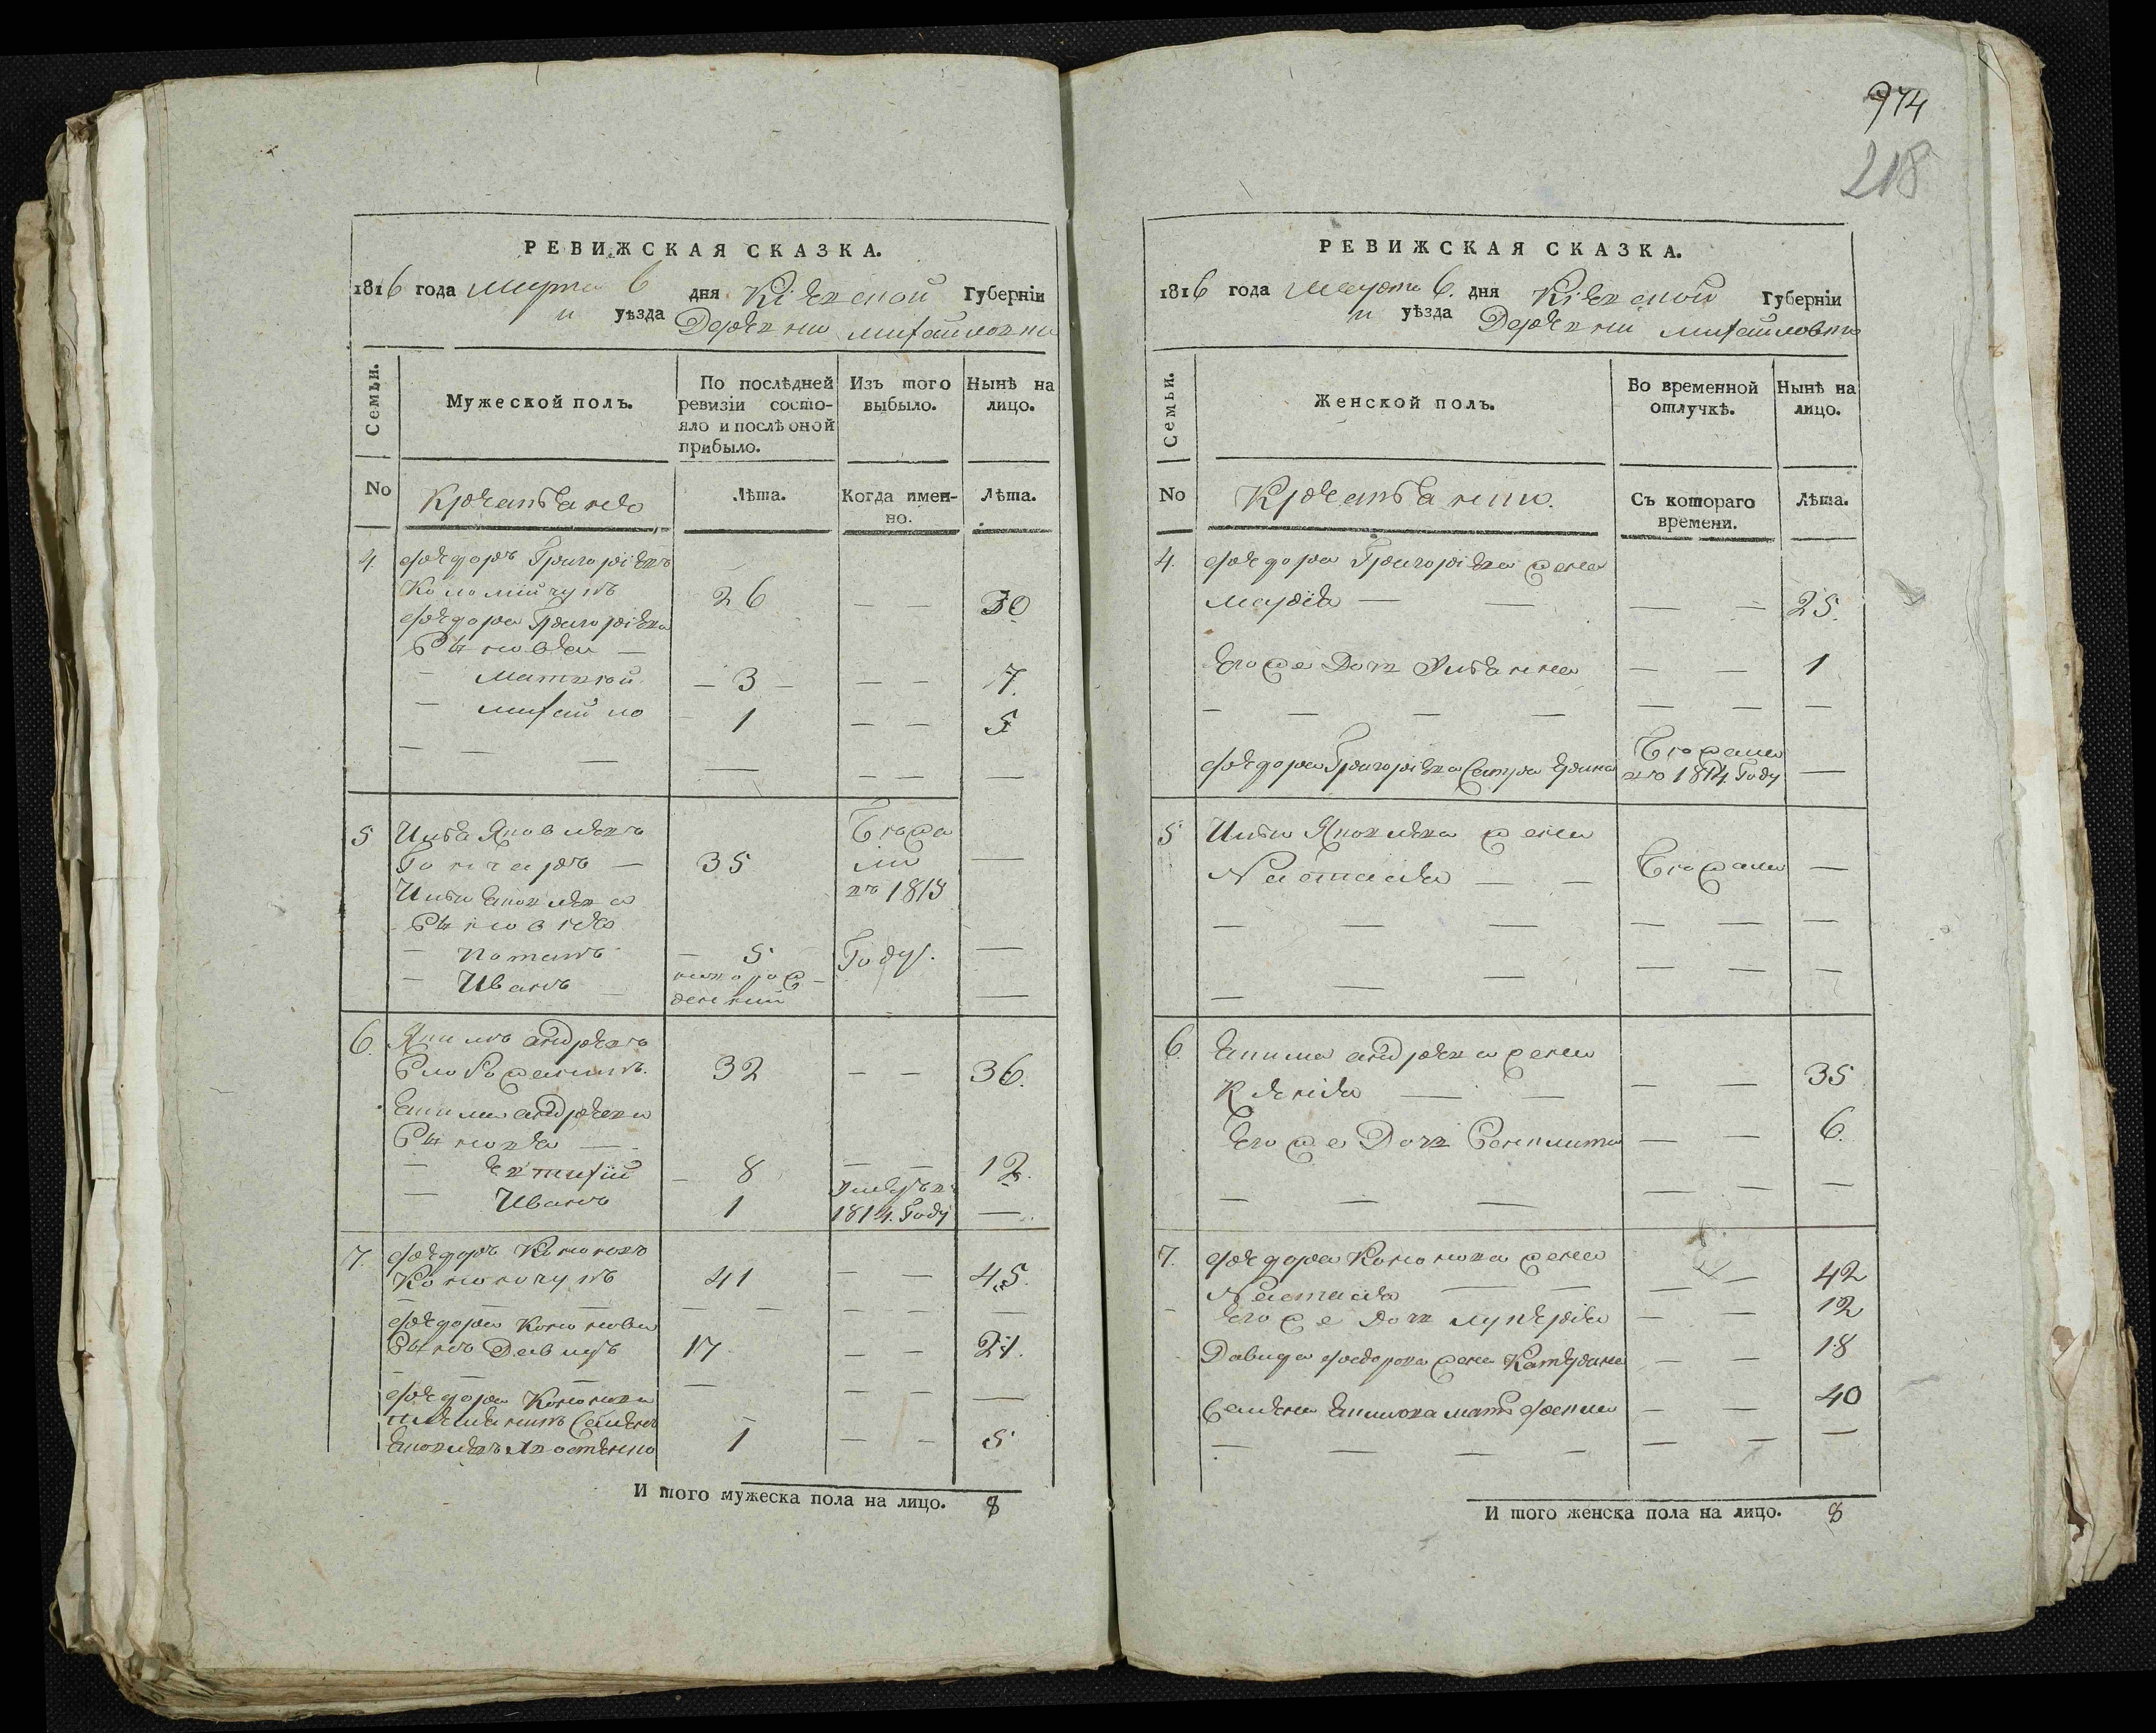 РЕВИЖСКАЯ СКАЗКА.
1816 года Марта 6 дня Кіевской Губерніи
и уѣзда Деревни Михайловки
Семьи.
Мужеской полъ.
По послѣдней ревизіи состояло и послѣ оной прибыло.
Изъ того выбыло.
Нынѣ на лицо.
No
Крестьяне
Лѣта.
Когда имен-
но.
Лѣта.
4. Федоръ Григоріевъ
Коломійчукъ 26 — — 30
Федора Григоріева
Сыновьи —
— Матвѣй — 3 — — — 7.
— Михайло — 1 — — 5
— — — — — — —
5 Илья Яковлевъ
Гончаръ — 35 Бежали въ 1813 Году. —
Ильи Яковлева
Сыновья
— Потапъ — 5 —
— Иванъ — новорожденный —
6. Якимъ Андреевъ
Слобоженинъ. 32 — — 36.
Якима Андреева
Сыновья —
— Евтихій — 8 — — 12.
— Иванъ 1 Умеръ въ 1814. Году —
7. Федоръ Кононовъ
Конончукъ 41 — — 45.
— — — — — — — —
Федора Кононова
Сынъ Давидъ 17 — — 21.
— — — — — — —
Федора Кононова
племянникъ Семенъ
Яковлевъ 1 — — 5
И того мужеска пола на лицо. 8
974
218
РЕВИЖСКАЯ СКАЗКА.
1816 года Марта 6. дня Кіевской Губерніи
и уѣзда Деревни Михайловки
Семьи.
Женской полъ.
Во временной отлучкѣ.
Нынѣ на лицо.
No
Крестьянки.
Съ котораго
времени.
Лѣта.
4. Федора Григоріева жена
Марія — — — — 25.
Его же Дочь Ульянна — — 1
— — — — — — —
Федора Григоріева Сестра Ирина Бежала въ 1814 Году —
5 Ильи Яковлева жена
Настасія — — Бежала —
— — — — — —
— — — — — —
6 Якима Андреева жена
Ксенія — — — — 35
Его же Дочь — — 6.
— — — — — —
7. Федора Кононова жена
Настасія — — — — 42
Его же Дочь Лукерія — — 12
Давида Федорова жена Катерина — — 18
Семена Якимова мать Фекла — — 40
— — — — — — —
И того женска пола на лицо. 8